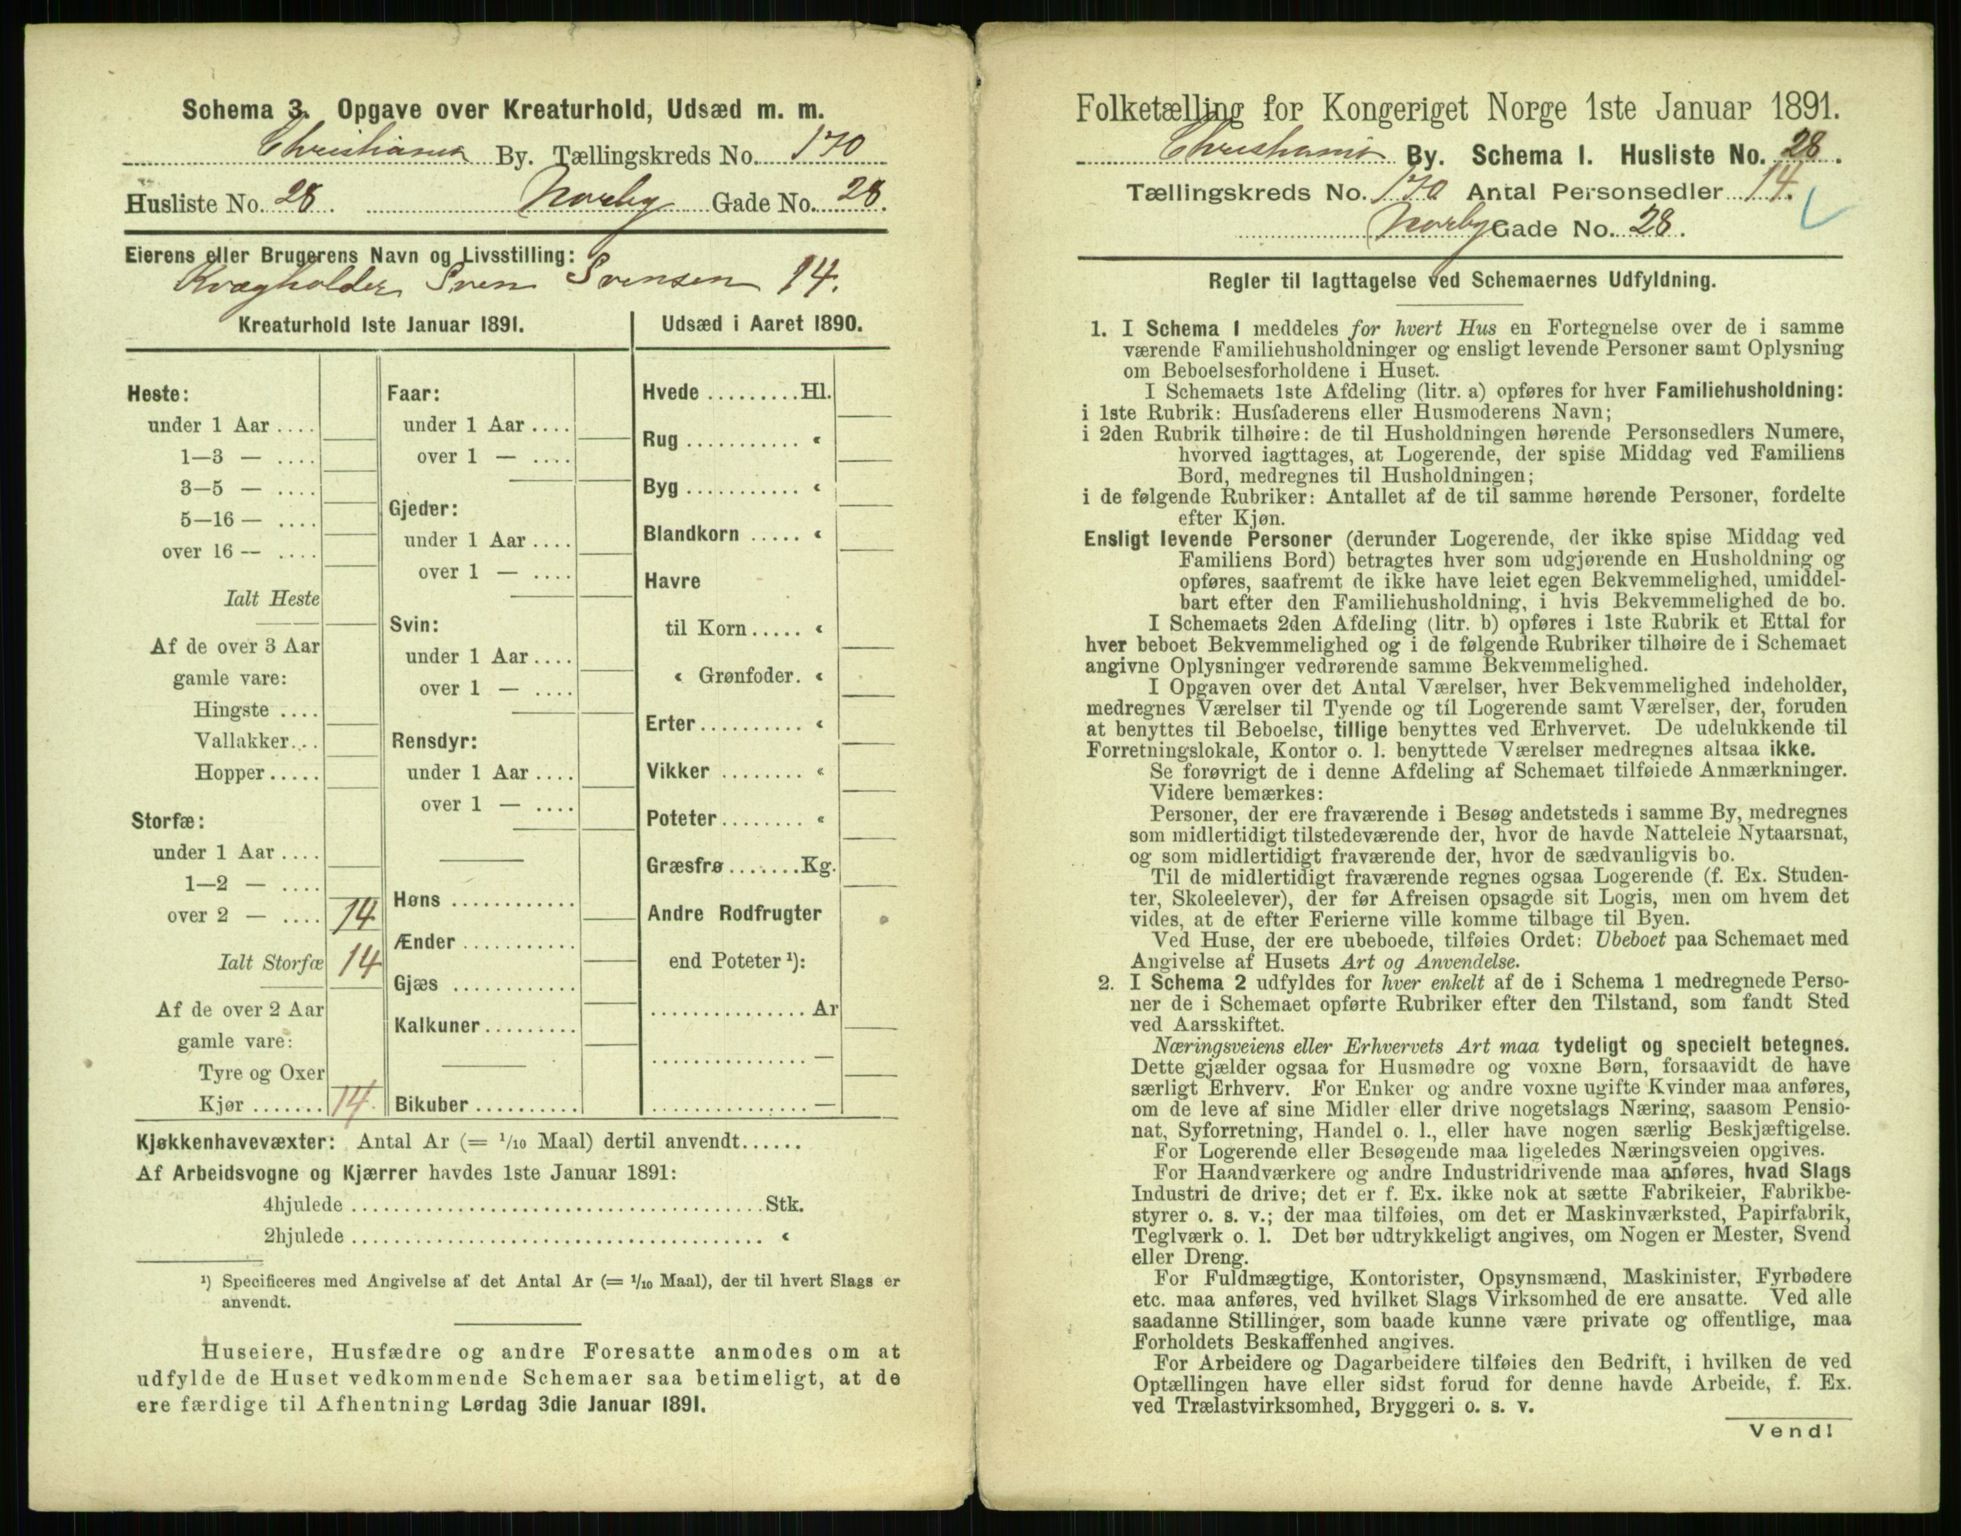 Schema 3. Opgave over Kreaturhold, Udsæd m. m.
Christiania By. Tællingskreds No. 170
Husliste No. 28. Norby Gade No. 28.
Eierens eller Brugerens Navn og Livsstilling:
Kvægholder Sven Svensen 14.
Kreaturhold 1ste Januar 1891.
Heste:
under 1 Aar ....
1—3 — ....
3—5 — ....
5—16 — ....
over 16 — ....
Ialt Heste
Af de over 3 Aar
gamle vare:
Hingste ....
Vallakker...
Hopper.....
Storfæ:
under 1 Aar ....
1—2 — ....
over 2 — .... 14
Ialt Storfæ 14
Af de over 2 Aar
gamle vare:
Tyre og Oxer
Kjør ....... 14.
Faar:
under 1 Aar ....
over 1 — ....
Gjeder:
under 1 Aar ....
over 1 — ....
Svin:
under 1 Aar ....
over 1 — ....
Rensdyr:
under 1 Aar ....
over 1 — ....
Høns ............
Ænder ...........
Gjæs ............
Kalkuner.........
Bikuber ..........
Udsæd i Aaret 1890.
Hvede .........Hl.
Rug ........... «
Byg ........... «
Blandkorn ..... «
Havre
til Korn..... «
« Grønfoder. «
Erter.......... «
Vikker ........ «
Poteter........ «
Græsfrø .......Kg.
Andre Rodfrugter
end Poteter ¹):
............... Ar
............... —
............... —
Kjøkkenhavevæxter: Antal Ar (= 1/10 Maal) dertil anvendt......
Af Arbeidsvogne og Kjærrer havdes 1ste Januar 1891:
4hjulede ......................................Stk.
2hjulede ...................................... «
¹) Specificeres med Angivelse af det Antal Ar (= 1/10 Maal), der til hvert Slags er
anvendt.
Huseiere, Husfædre og andre Foresatte anmodes om at
udfylde de Huset vedkommende Schemaer saa betimeligt, at de
ere færdige til Afhentning Lørdag 3die Januar 1891.
Folketælling for Kongeriget Norge 1ste Januar 1891.
Christiania By. Schema I. Husliste No. 28.
Tællingskreds No. 170 Antal Personsedler 14.
Norby Gade No. 28.
Regler til Iagttagelse ved Schemaernes Udfyldning.
1. I Schema I meddeles for hvert Hus en Fortegnelse over de i samme
værende Familiehusholdninger og ensligt levende Personer samt Oplysning
om Beboelsesforholdene i Huset.
I Schemaets 1ste Afdeling (litr. a) opføres for hver Familiehusholdning:
i 1ste Rubrik: Husfaderens eller Husmoderens Navn;
i 2den Rubrik tilhøire: de til Husholdningen hørende Personsedlers Numere,
hvorved iagttages, at Logerende, der spise Middag ved Familiens
Bord, medregnes til Husholdningen;
i de følgende Rubriker: Antallet af de til samme hørende Personer, fordelte
efter Kjøn.
Ensligt levende Personer (derunder Logerende, der ikke spise Middag ved
Familiens Bord) betragtes hver som udgjørende en Husholdning og
opføres, saafremt de ikke have leiet egen Bekvemmelighed, umiddel-
bart efter den Familiehusholdning, i hvis Bekvemmelighed de bo.
I Schemaets 2den Afdeling (litr. b) opføres i 1ste Rubrik et Ettal for
hver beboet Bekvemmelighed og i de følgende Rubriker tilhøire de i Schemaet
angivne Oplysninger vedrørende samme Bekvemmelighed.
I Opgaven over det Antal Værelser, hver Bekvemmelighed indeholder,
medregnes Værelser til Tyende og til Logerende samt Værelser, der, foruden
at benyttes til Beboelse, tillige benyttes ved Erhvervet. De udelukkende til
Forretningslokale, Kontor o. l. benyttede Værelser medregnes altsaa ikke.
Se forøvrigt de i denne Afdeling af Schemaet tilføiede Anmærkninger.
Videre bemærkes:
Personer, der ere fraværende i Besøg andetsteds i samme By, medregnes
som midlertidigt tilstedeværende der, hvor de havde Natteleie Nytaarsnat,
og som midlertidigt fraværende der, hvor de sædvanligvis bo.
Til de midlertidigt fraværende regnes ogsaa Logerende (f. Ex. Studen-
ter, Skoleelever), der før Afreisen opsagde sit Logis, men om hvem det
vides, at de efter Ferierne ville komme tilbage til Byen.
Ved Huse, der ere ubeboede, tilføies Ordet: Ubeboet paa Schemaet med
Angivelse af Husets Art og Anvendelse.
2. I Schema 2 udfyldes for hver enkelt af de i Schema 1 medregnede Perso-
ner de i Schemaet opførte Rubriker efter den Tilstand, som fandt Sted
ved Aarsskiftet.
Næringsveiens eller Erhvervets Art maa tydeligt og specielt betegnes.
Dette gjælder ogsaa for Husmødre og voxne Børn, forsaavidt de have
særligt Erhverv. For Enker og andre voxne ugifte Kvinder maa anføres,
om de leve af sine Midler eller drive nogetslags Næring, saasom Pensio-
nat, Syforretning, Handel o. l., eller have nogen særlig Beskjæftigelse.
For Logerende eller Besøgende maa ligeledes Næringsveien opgives.
For Haandværkere og andre Industridrivende maa anføres, hvad Slags
Industri de drive; det er f. Ex. ikke nok at sætte Fabrikeier, Fabrikbe-
styrer o. s. v.; der maa tilføies, om det er Maskinværksted, Papirfabrik,
Teglværk o. l. Det bør udtrykkeligt angives, om Nogen er Mester, Svend
eller Dreng.
For Fuldmægtige, Kontorister, Opsynsmænd, Maskinister, Fyrbødere
etc. maa anføres, ved hvilket Slags Virksomhed de ere ansatte. Ved alle
saadanne Stillinger, som baade kunne være private og offentlige, maa
Forholdets Beskaffenhed angives.
For Arbeidere og Dagarbeidere tilføies den Bedrift, i hvilken de ved
Optællingen have eller sidst forud for denne havde Arbeide, f. Ex.
ved Trælastvirksomhed, Bryggeri o. s. v.
Vend!